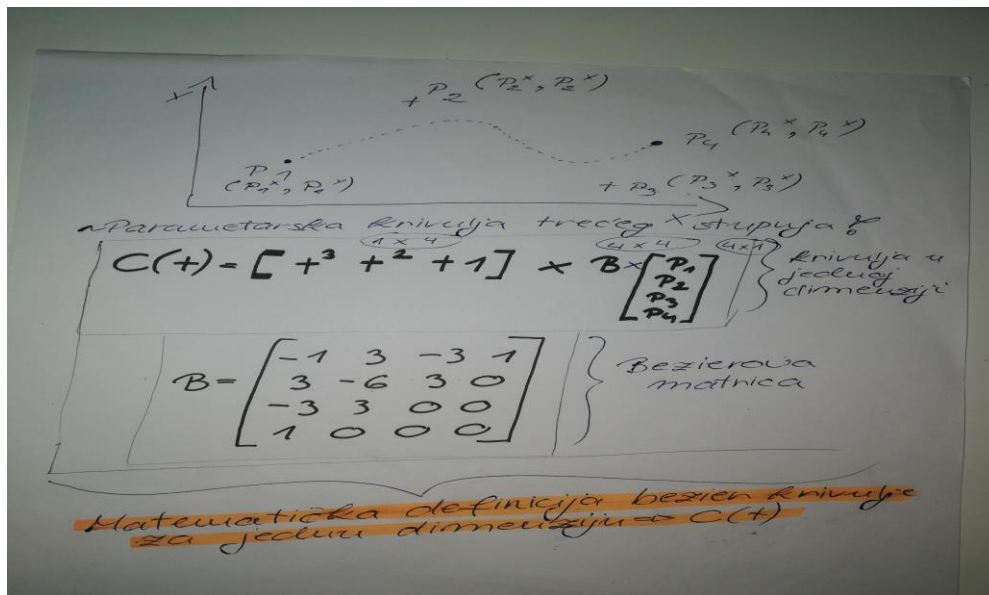 + P2 (P2^x, P2^x)
P4 (P4^x, P4^x)
P1
(P1^x, P2^x)
+ P3 (P3^x, P3^x)
~Parametarska krivulja trećeg x stupnja
1 x 4
4 x 4
4x1
C(t) = [t³ t² t 1] x B x [P1 P2 P3 P4]
krivulja u
jednoj
dimenziji
B = [-1 3 -3 1
3 -6 3 0
-3 3 0 0
1 0 0 0]
Bezierova
matrica
Matematička definicija bezier krivulje
za jednu dimenziju => C(t)